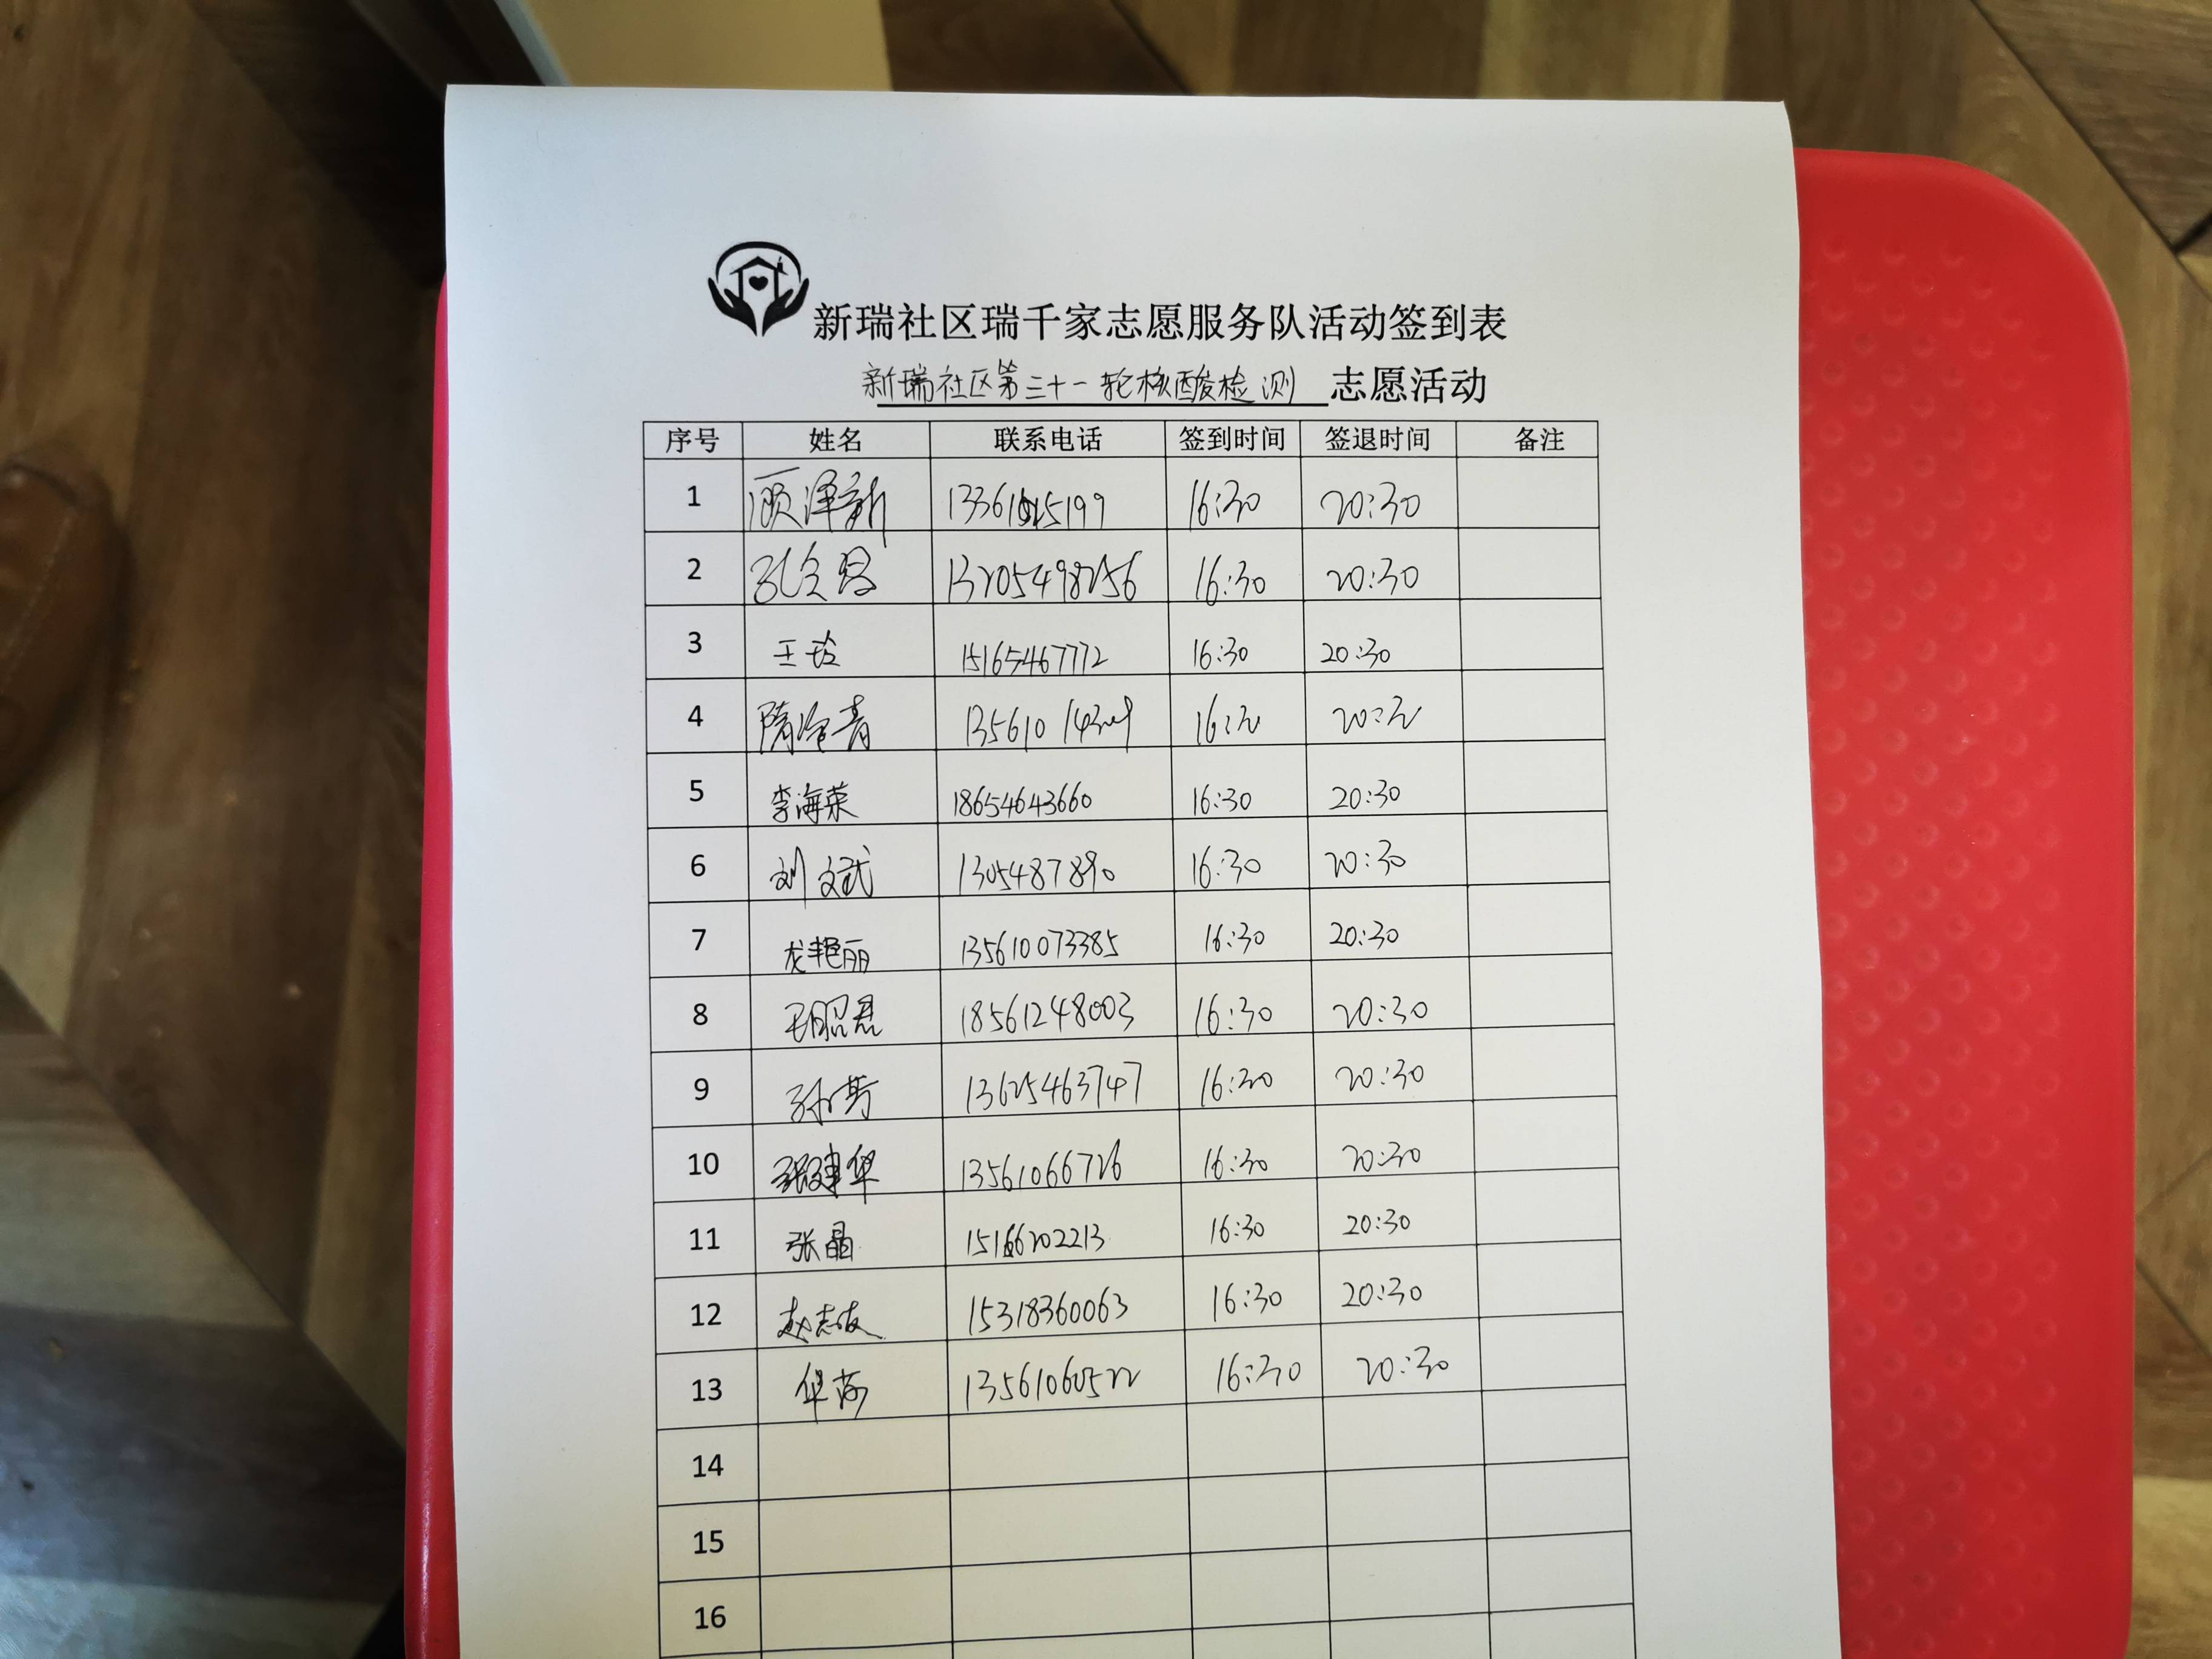 新瑞社区瑞千家志愿服务队活动签到表
新瑞社区第三十一轮核酸检测 志愿活动
序号 姓名 联系电话 签到时间 签退时间 备注
1 顾泽新 16:30 20:30
2 13705498256 16:30 20:30
3 王玲 15165467772 16:30 20:30
4 16:30 20:30
5 李海荣 18654643660 16:30 20:30
6 刘文武 1305487890 16:30 20:30
7 龙艳丽 135610073385 16:30 20:30
8 18561248003 16:30 20:30
9 13625463747 16:30 20:30
10 张建华 13561066726 16:30 20:30
11 张晶 15166202213 16:30 20:30
12 赵志友 15318360063 16:30 20:30
13 13561060522 16:30 20:30
14
15
16